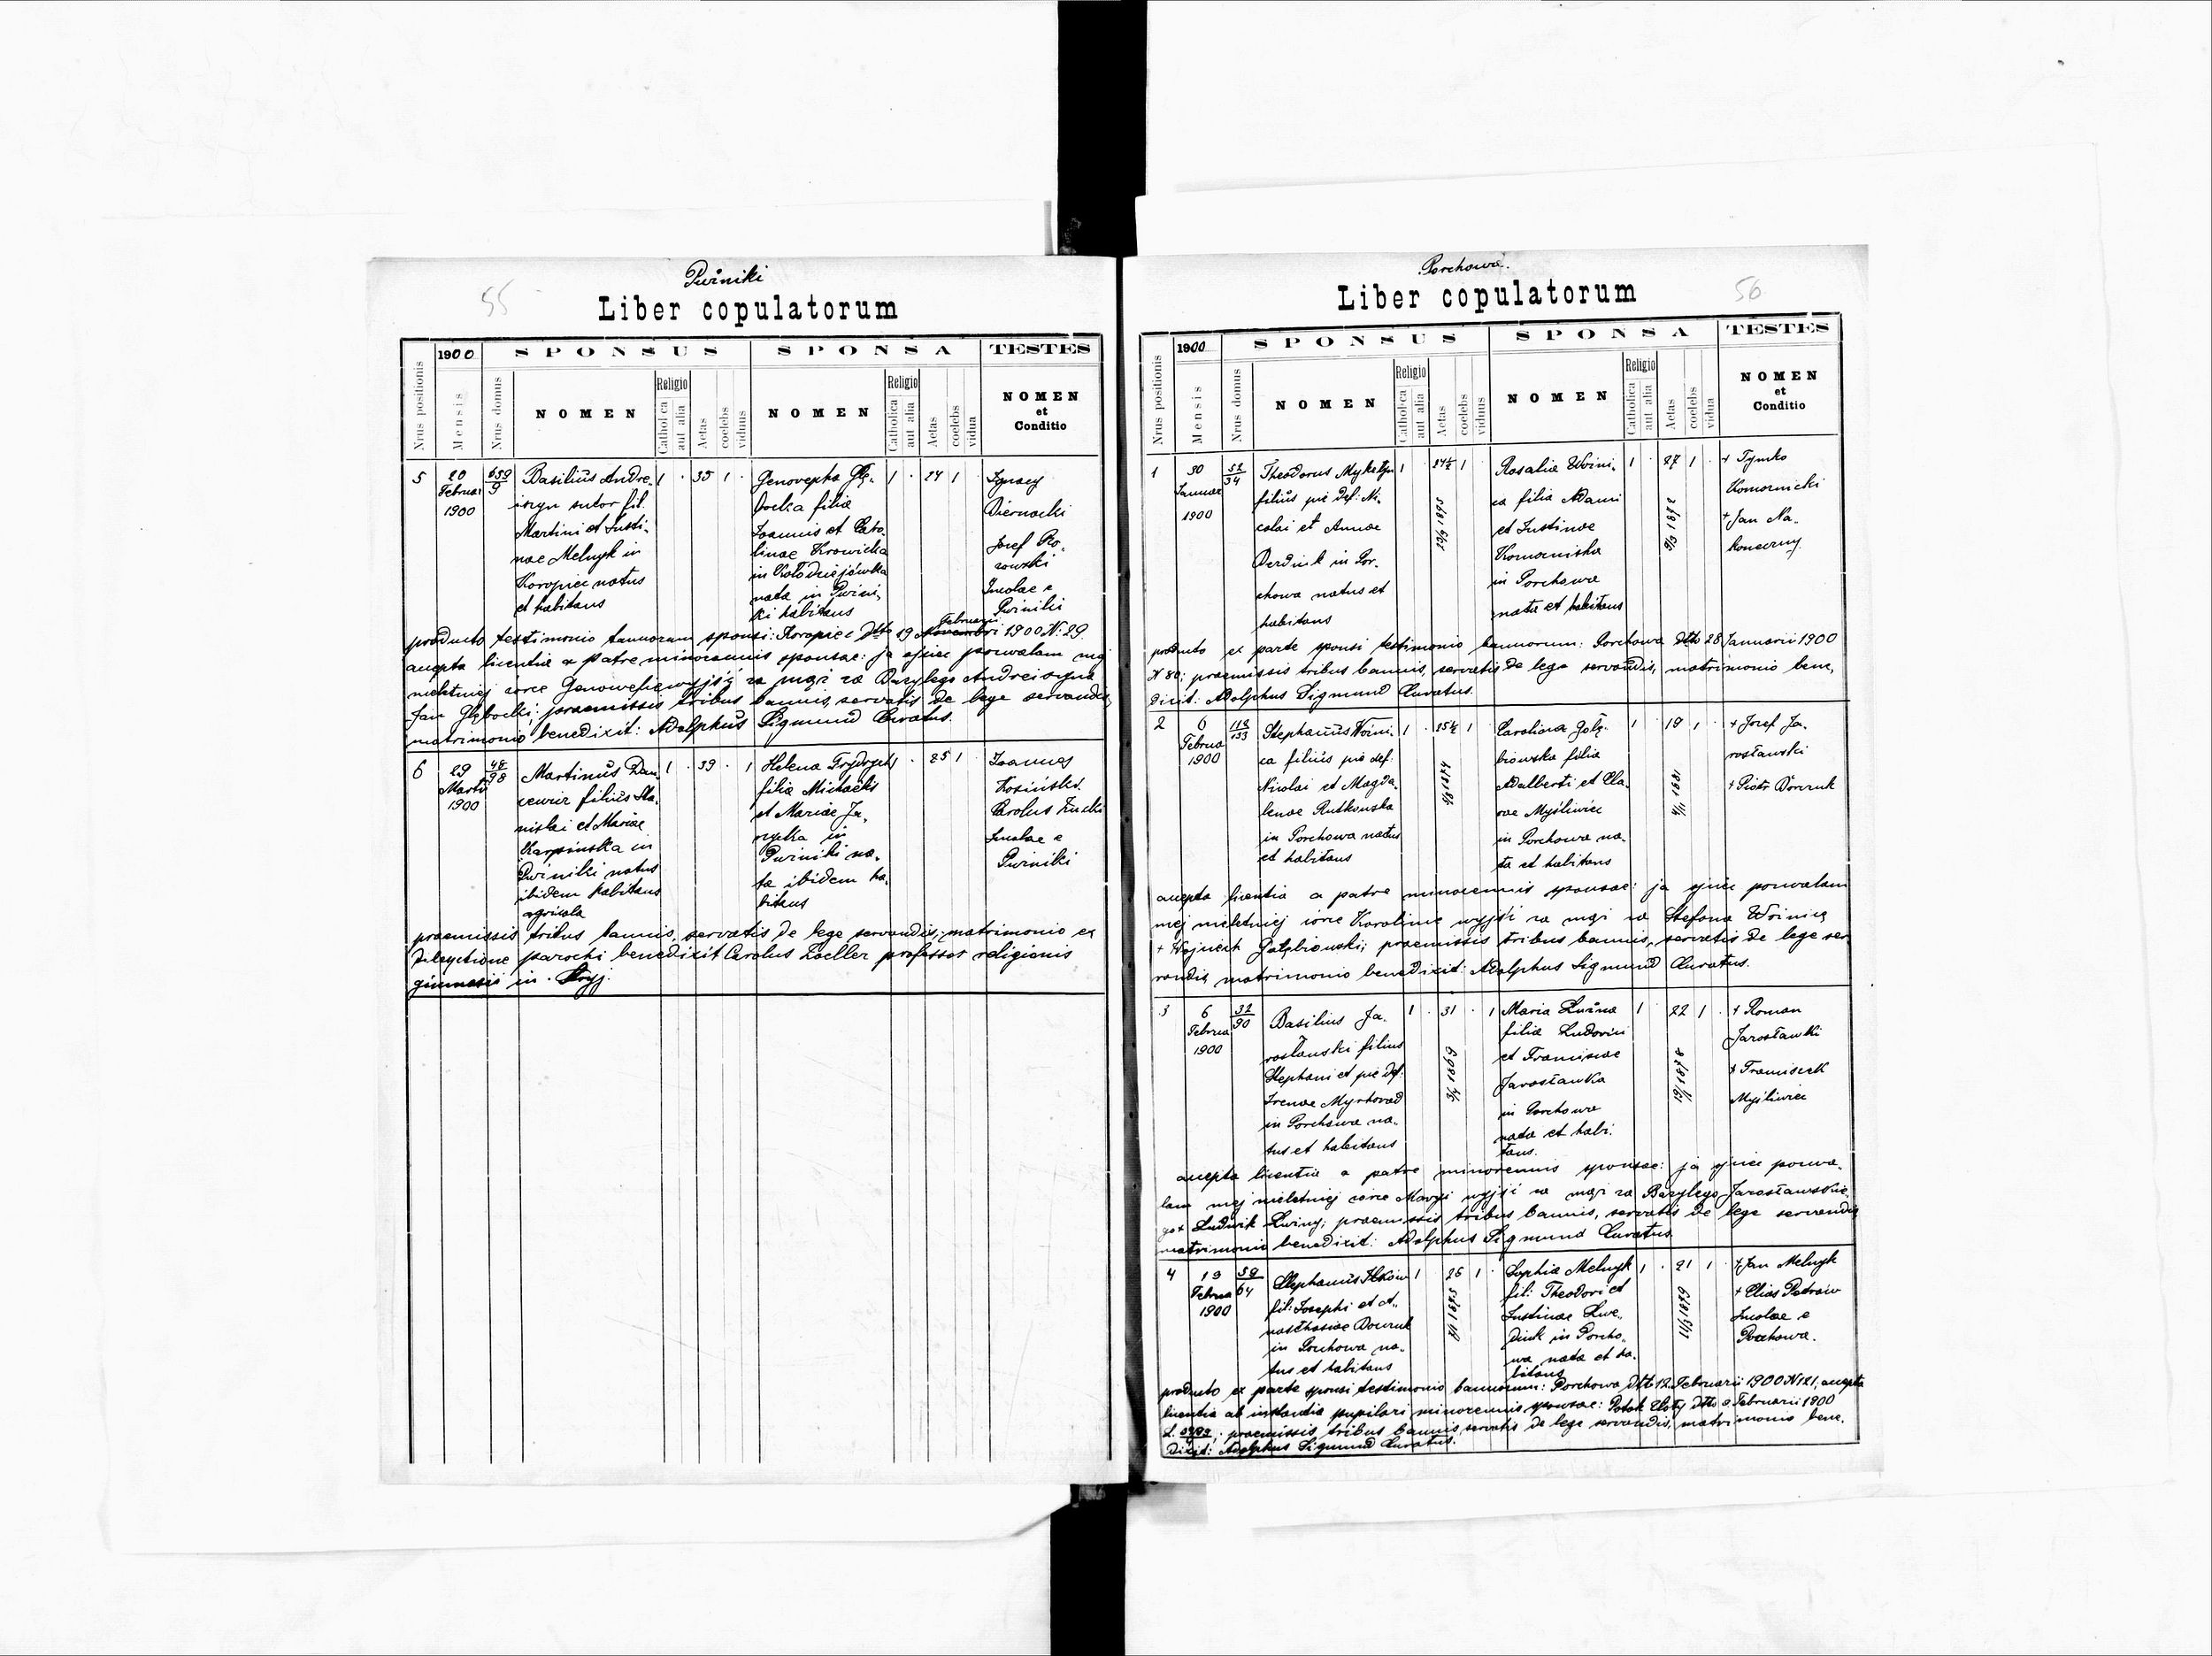 Puźniki
55
Liber copulatorum
Nrus positionis
1900
Mensis
Nrus domus
SPONSUS
NOMEN
Religio
Catholica
aut alia
Aetas
coelebs
viduus
SPONSA
NOMEN
Religio
Catholica
aut alia
Aetas
coelebs
vidua
TESTES
NOMEN
et
Conditio
5
20
Februar
1900
659
9
Basilius Andre-
iszyn sutor fil.
Martini et Justi-
nae Melnyk in
Koropiec natus
et habitans
1 . 35 1 .
Genovepha Głę-
bocka filia
Joannis et Caro-
linae Krowicka
in Kołodziejówka
nata in Puźni-
ki habitans
1 . 24 1
Ignacy
Biernacki
Josef Ro-
sowski
Incolae e
Puźniki
producto testimonio bannorum sponsi: Koropiec dtto 19 Februarii 1900 N: 29
accepta licentia a patre minorennis sponsae: ja ojciec pozwalam mej
nieletniej córce Genowefie wyjść za mąż za Bazylego Andreiszyna
Jan Głębocki; praemissis tribus bannis, servatis de lege servandis,
matrimonio benedixit: Adolphus Sigmund Curatus.
6
29
Martii
1900
48
98
Martinus Dan-
cewicz filius Sta-
nislai et Mariae
Karpinska in
Puźniki natus
ibidem habitans
agricola
1 . 39 . 1
Helena Frydrych
filia Michaelis
et Mariae Ja-
nicka in
Puźniki na-
ta ibidem ha-
bitans
1 . 25 1
Joannes
Kosiński
Carolus Zucki
Incolae e
Puźniki
praemissis tribus bannis, servatis de lege servandis; matrimonio ex
delegatione parochi benedixit Carolus Zoeller professor religionis
gimnasii in Stryj.
Porchowa.
50
Liber copulatorum
Nrus positionis
1900
Mensis
Nrus domus
SPONSUS
NOMEN
Religio
Catholica
aut alia
Aetas
coelebs
viduus
SPONSA
NOMEN
Religio
Catholica
aut alia
Aetas
coelebs
vidua
TESTES
NOMEN
et
Conditio
1
30
Januar
1900
52
34
Theodorus Mykytyn
filius pie def: Ni-
colai et Annae
Derdiuk in Por-
chowa natus et
habitans
1 24½ 1
Rosalia Woźni-
ca filia Adami
et Justinae
Komarnicka
in Porchowa
nata et habitans
1 . 27 1 .
+ Tymko
Komornicki
+ Jan Na-
konieczny.
producto ex parte sponsi testimonio bannorum: Porchowa dtto 28 Januarii 1900
N 80; praemissis tribus bannis, servatis de lege servandis, matrimonio bene-
dixit: Adolphus Sigmund Curatus.
2
6
Februa
1900
113
133
Stephanus Woźni-
ca filius pie def:
Nicolai et Magda-
lenae Rutkowska
in Porchowa natus
et habitans
1 . 25½ 1
Carolina Gołę-
biowska filia
Adalberti et Cla-
rae Myśliwiec
in Porchowa na-
ta et habitans
1 . 19 1 .
+ Josef Ja-
rosławski
+ Piotr Dowruk
accepta licentia a patre minorennis sponsae: ja ojciec pozwalam
mej nieletniej córce Karolinie wyjść za mąż za Stefana Woźnicę
+ Wojciech Gołębiowski; praemissis tribus bannis, servatis de lege ser-
vandis, matrimonio benedixit: Adolphus Sigmund Curatus.
3
6
Februa
1900
32
90
Basilius Ja-
rosławski filius
Stephani et pie def.
Irenae Myrhorad
in Porchowa na-
tus et habitans
1 . 31 . 1
Maria Luźna
filia Ludovici
et Franciscae
Jarosławska
in Porchowa
nata et habi-
tans.
1 . 22 1 .
+ Roman
Jarosławki
+ Franciszek
Myśliwiec
accepta licentia a patre minorennis sponsae: ja ojciec pozwa-
lam mej nieletniej córce Maryi wyjść za mąż za Bazylego Jarosławskie-
go + Ludwik Luźny; praemissis tribus bannis, servatis de lege servandis
matrimonio benedixit: Adolphus Sigmund Curatus.
4
19
Februa
1900
59
64
Stephanus Ilków
fil: Josephi et A-
nasthasiae Dowruk
in Porchowa na-
tus et habitans
1 25 1 .
Sophia Melnyk
fil: Theodori et
Justinae
in Porcho-
wa nata et ha-
bitans
1 . 21 1 .
+ Jan Melnyk
+ Elias Petrów
Incolae e
Porchowa.
producto ex parte sponsi testimonio bannorum: Porchowa dtto 12 Februarii 1900 N 121; accepta
licentia ab instantia pupilari minorennis sponsae: Potok Złoty dtto 9 Februarii 1900
praemissis tribus bannis, servatis de lege servandis, matrimonio bene-
dixit: Adolphus Sigmund Curatus.